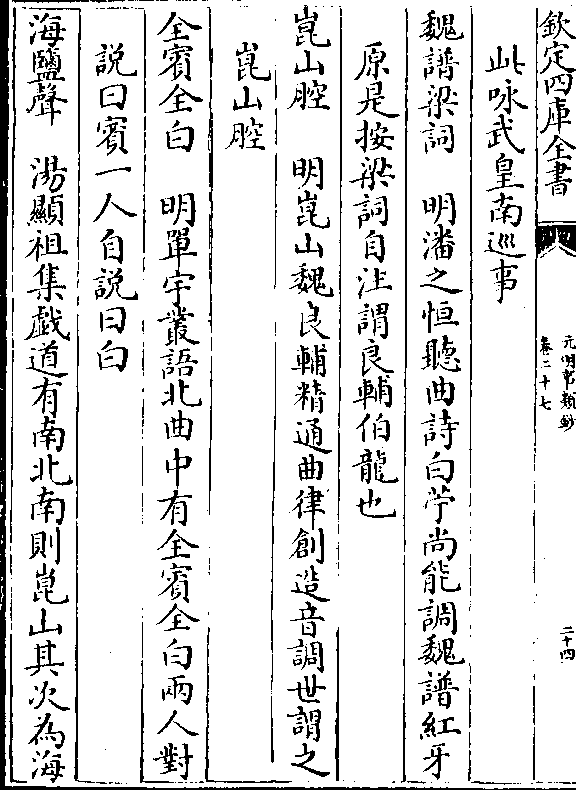 欽定四庫全書
元明事類鈔
卷二十七
二十四
此咏武皇南巡事
魏譜梁詞　明潘之恒聽曲詩白苧尚能調魏譜紅牙
原是按梁詞自注謂良輔伯龍也
崑山腔　明崑山魏良輔精通曲律創造音調世謂之
崑山腔
全賓全白　明單宇叢語北曲中有全賓全白兩人對
説曰賓一人自説曰白
海鹽聲　湯顯祖集戲道有南北南則崑山其次為海